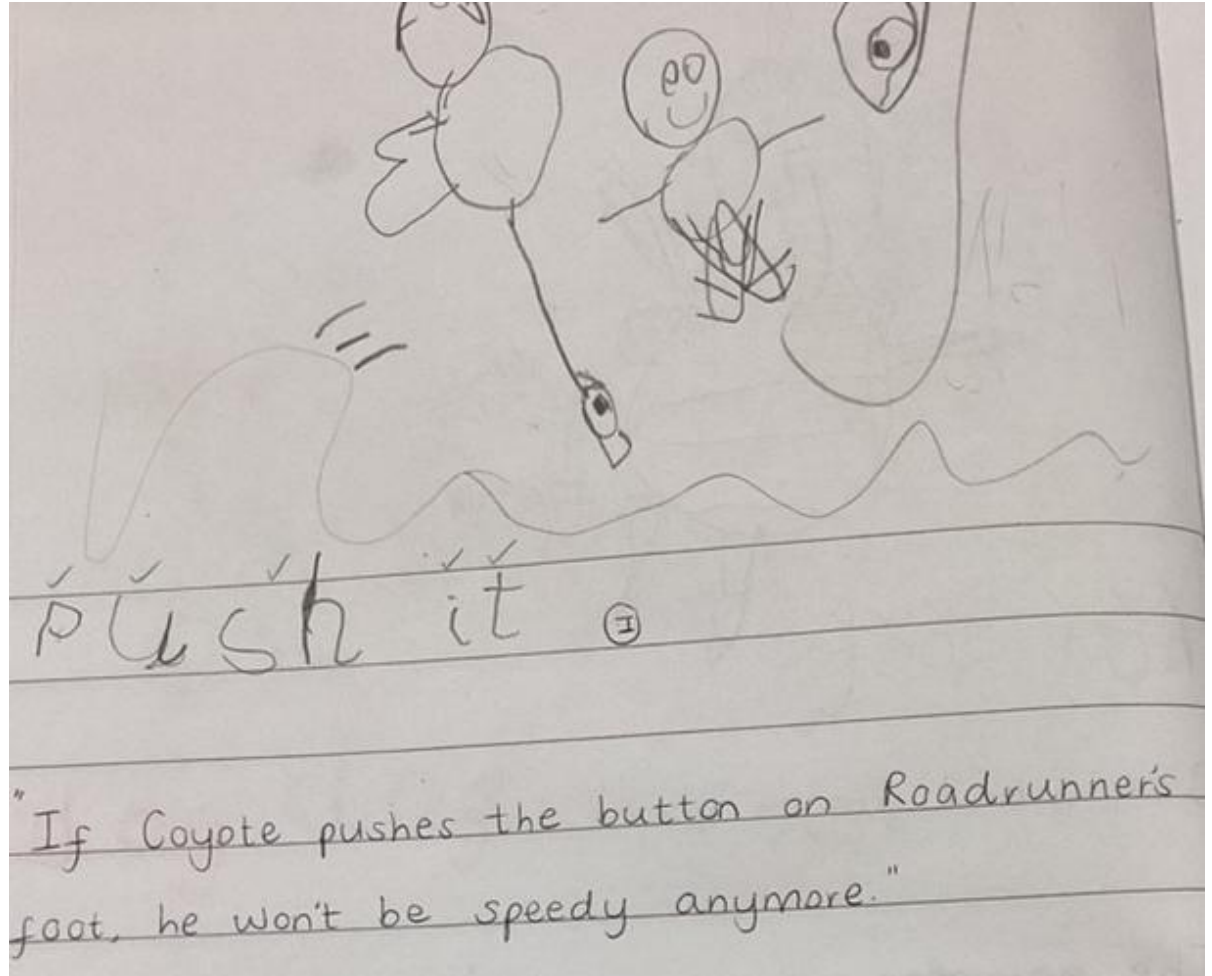 push it I
"If Coyote pushes the button on Roadrunner's
foot, he won't be speedy anymore."